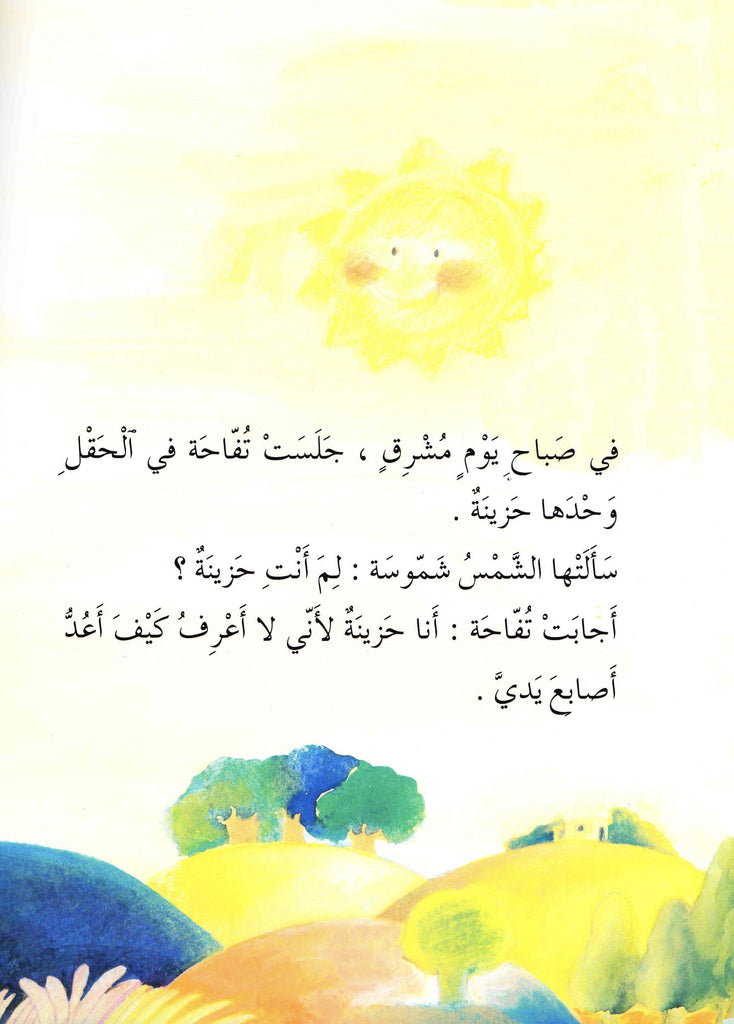 في صَباحِ يَوْمٍ مُشْرِقٍ ، جَلَسَتْ تُفّاحَة في ٱلْحَقْلِ
وَحْدَها حَزينَةٌ .
سَأَلَتْها الشَّمْسُ شَمّوسَة : لِمَ أَنْتِ حَزينَةٌ ؟
أَجابَتْ تُفّاحَة : أَنا حَزينَةٌ لأَنّي لا أَعْرِفُ كَيْفَ أَعُدُّ
أَصابِعَ يَديَّ .